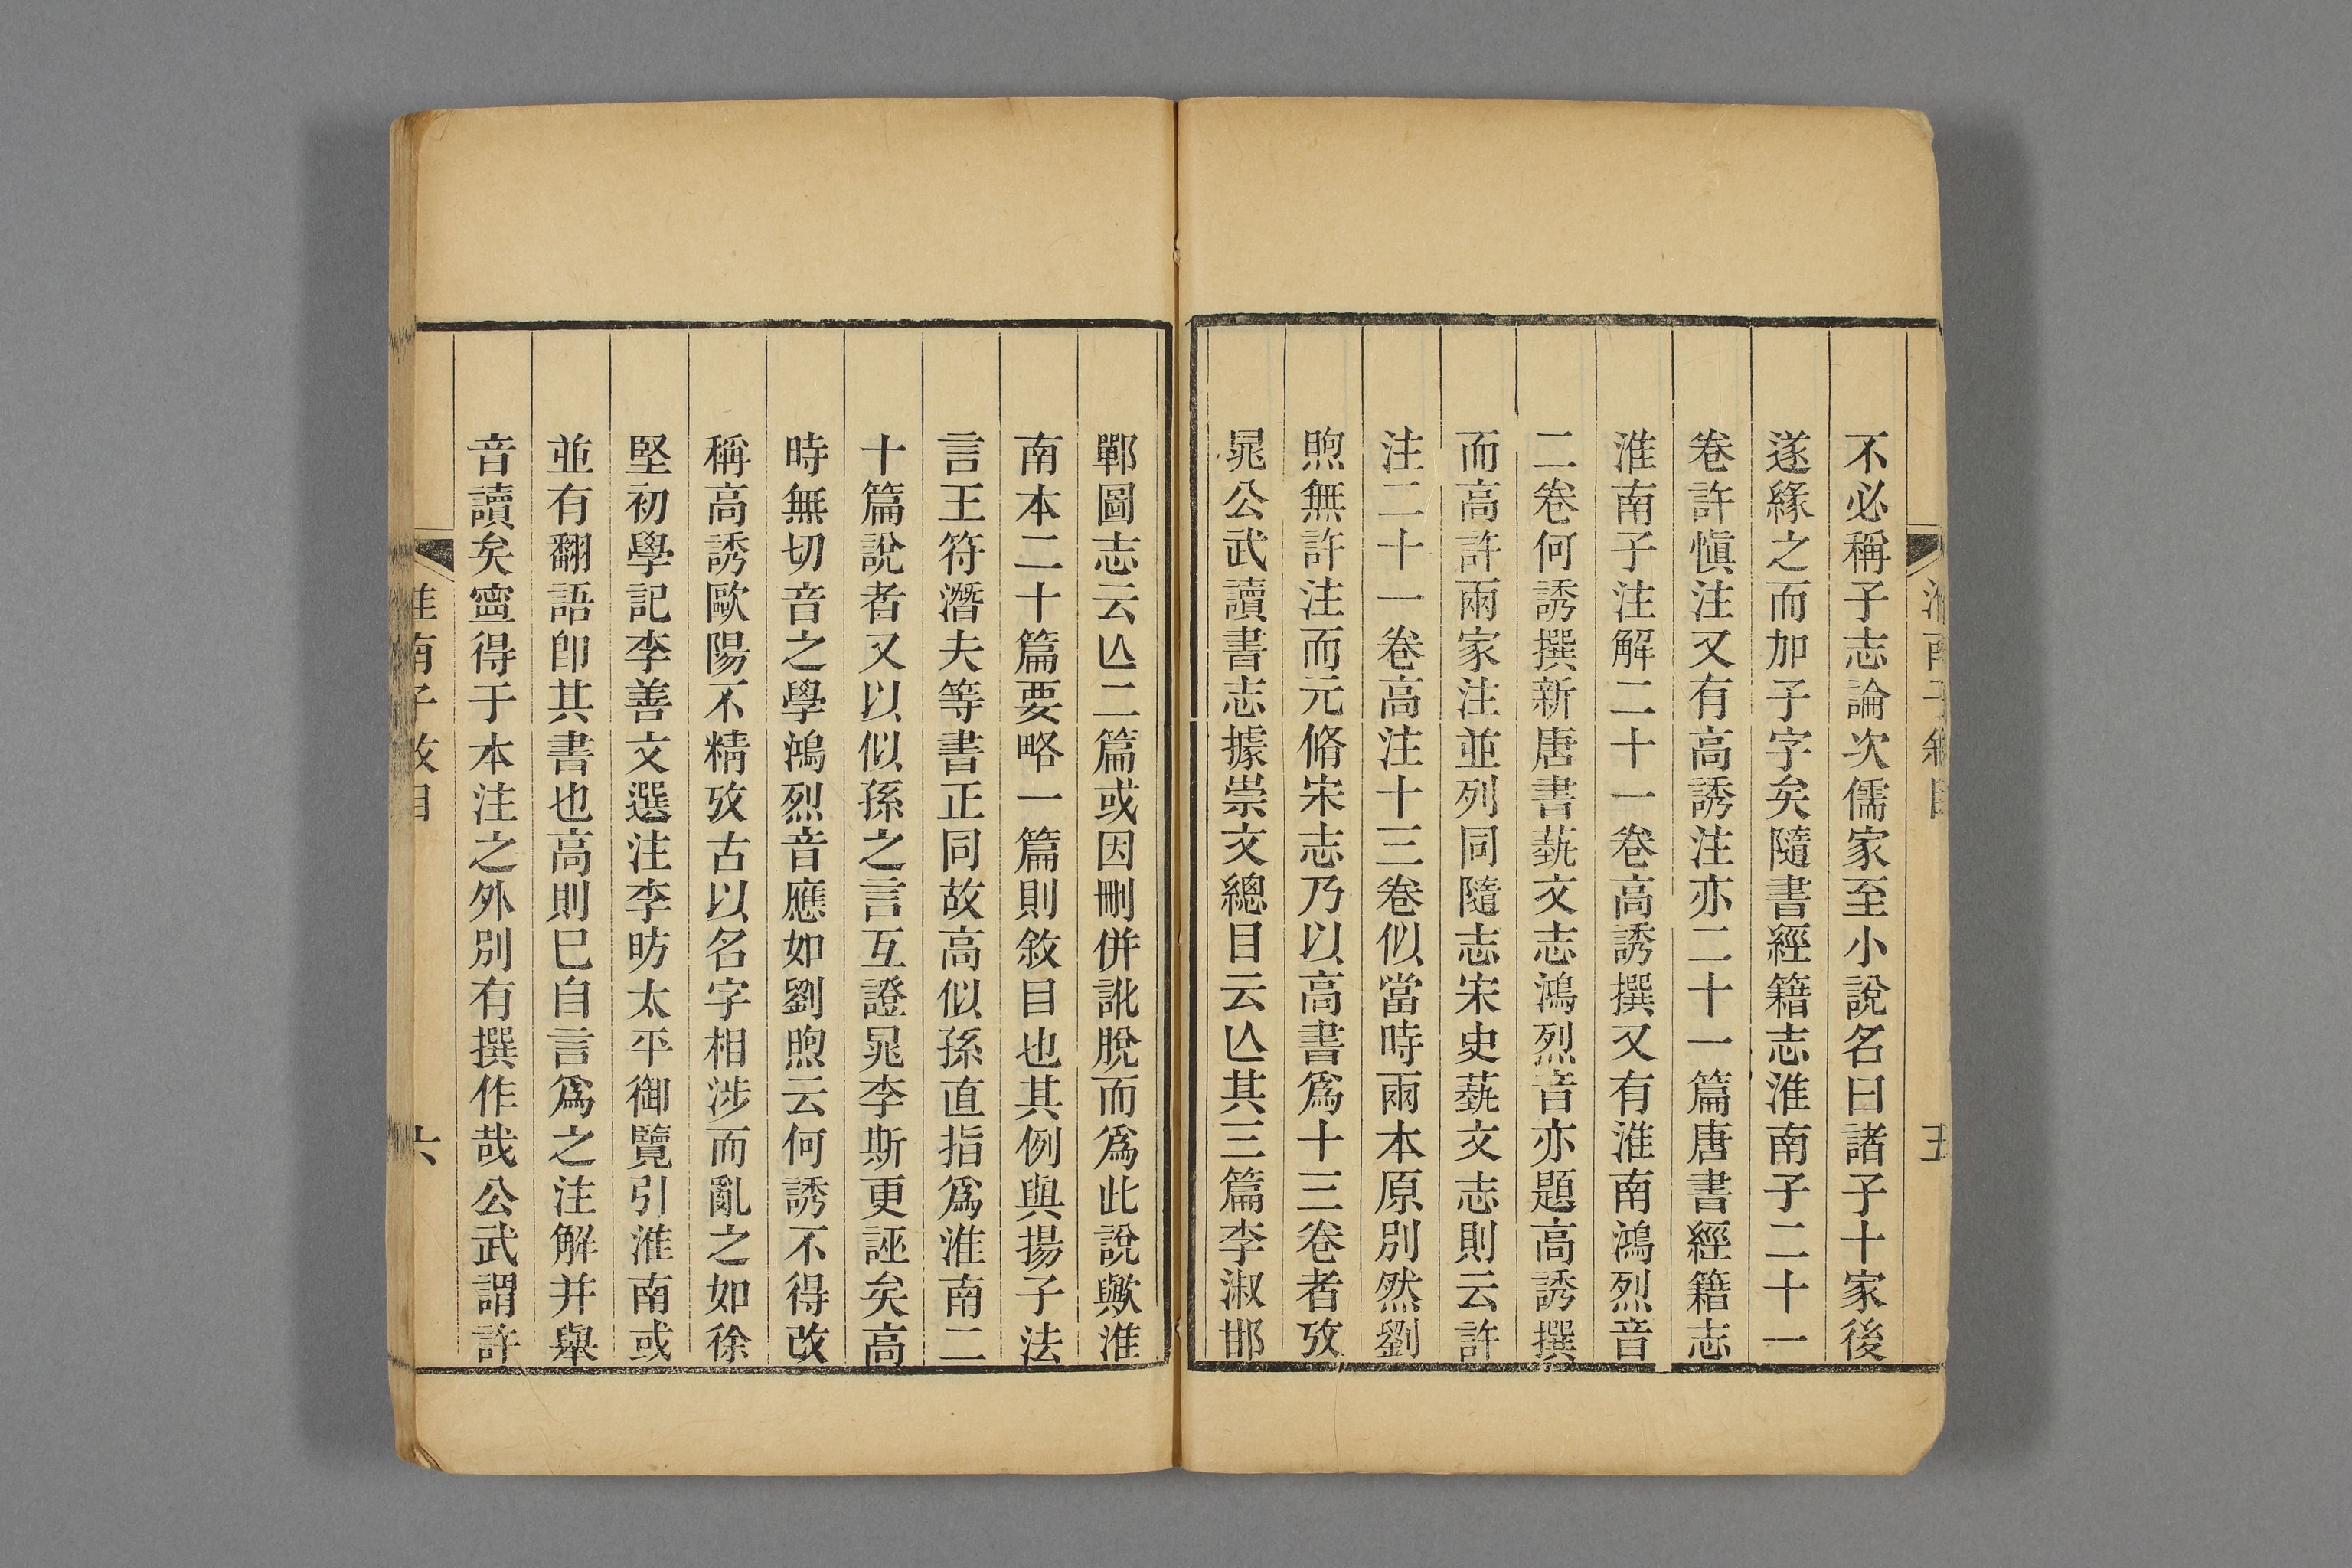 不必稱子志論次儒家至小說名曰諸子十家後
遂緣之而加子字矣隨書經籍志淮南子二十一
卷許愼注又有高誘注亦二十一篇唐書經籍志
淮南子注解二十一卷高誘撰又有淮南鴻烈音
二卷何誘撰新唐書蓺文志鴻烈音亦題高誘撰
而高許兩家注並列同隨志宋史蓺文志則云許
注二十一卷高注十三卷似當時兩本原別然劉
煦無許注而元脩宋志乃以高書爲十三卷者攷
晁公武讀書志據崇文總目云亾其三篇李淑邯
鄲圖志云亾二篇或因刪併訛脫而爲此說歟淮
南本二十篇要略一篇則敘目也其例與揚子法
言王符潛夫等書正同故高似孫直指爲淮南二
十篇說者又以似孫之言互證晁李斯更誣矣高
時無切音之學鴻烈音應如劉煦云何誘不得改
稱高誘歐陽不精攷古以名字相涉而亂之如徐
堅初學記李善文選注李昉太平御覽引淮南或
並有翻語卽其書也高則巳自言爲之注解并舉
音讀矣寍得于本注之外別有撰作哉公武謂許
淮南子敘目
六